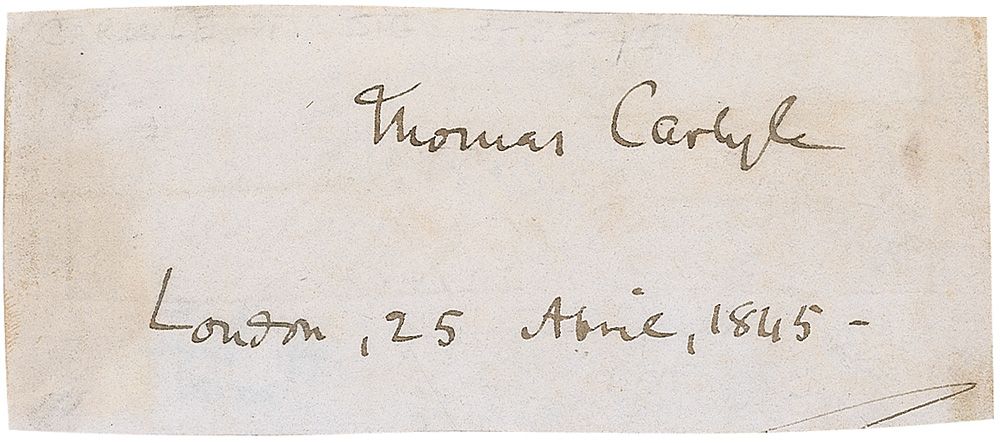 Thomas Carlyle
London, 25 April, 1845 -